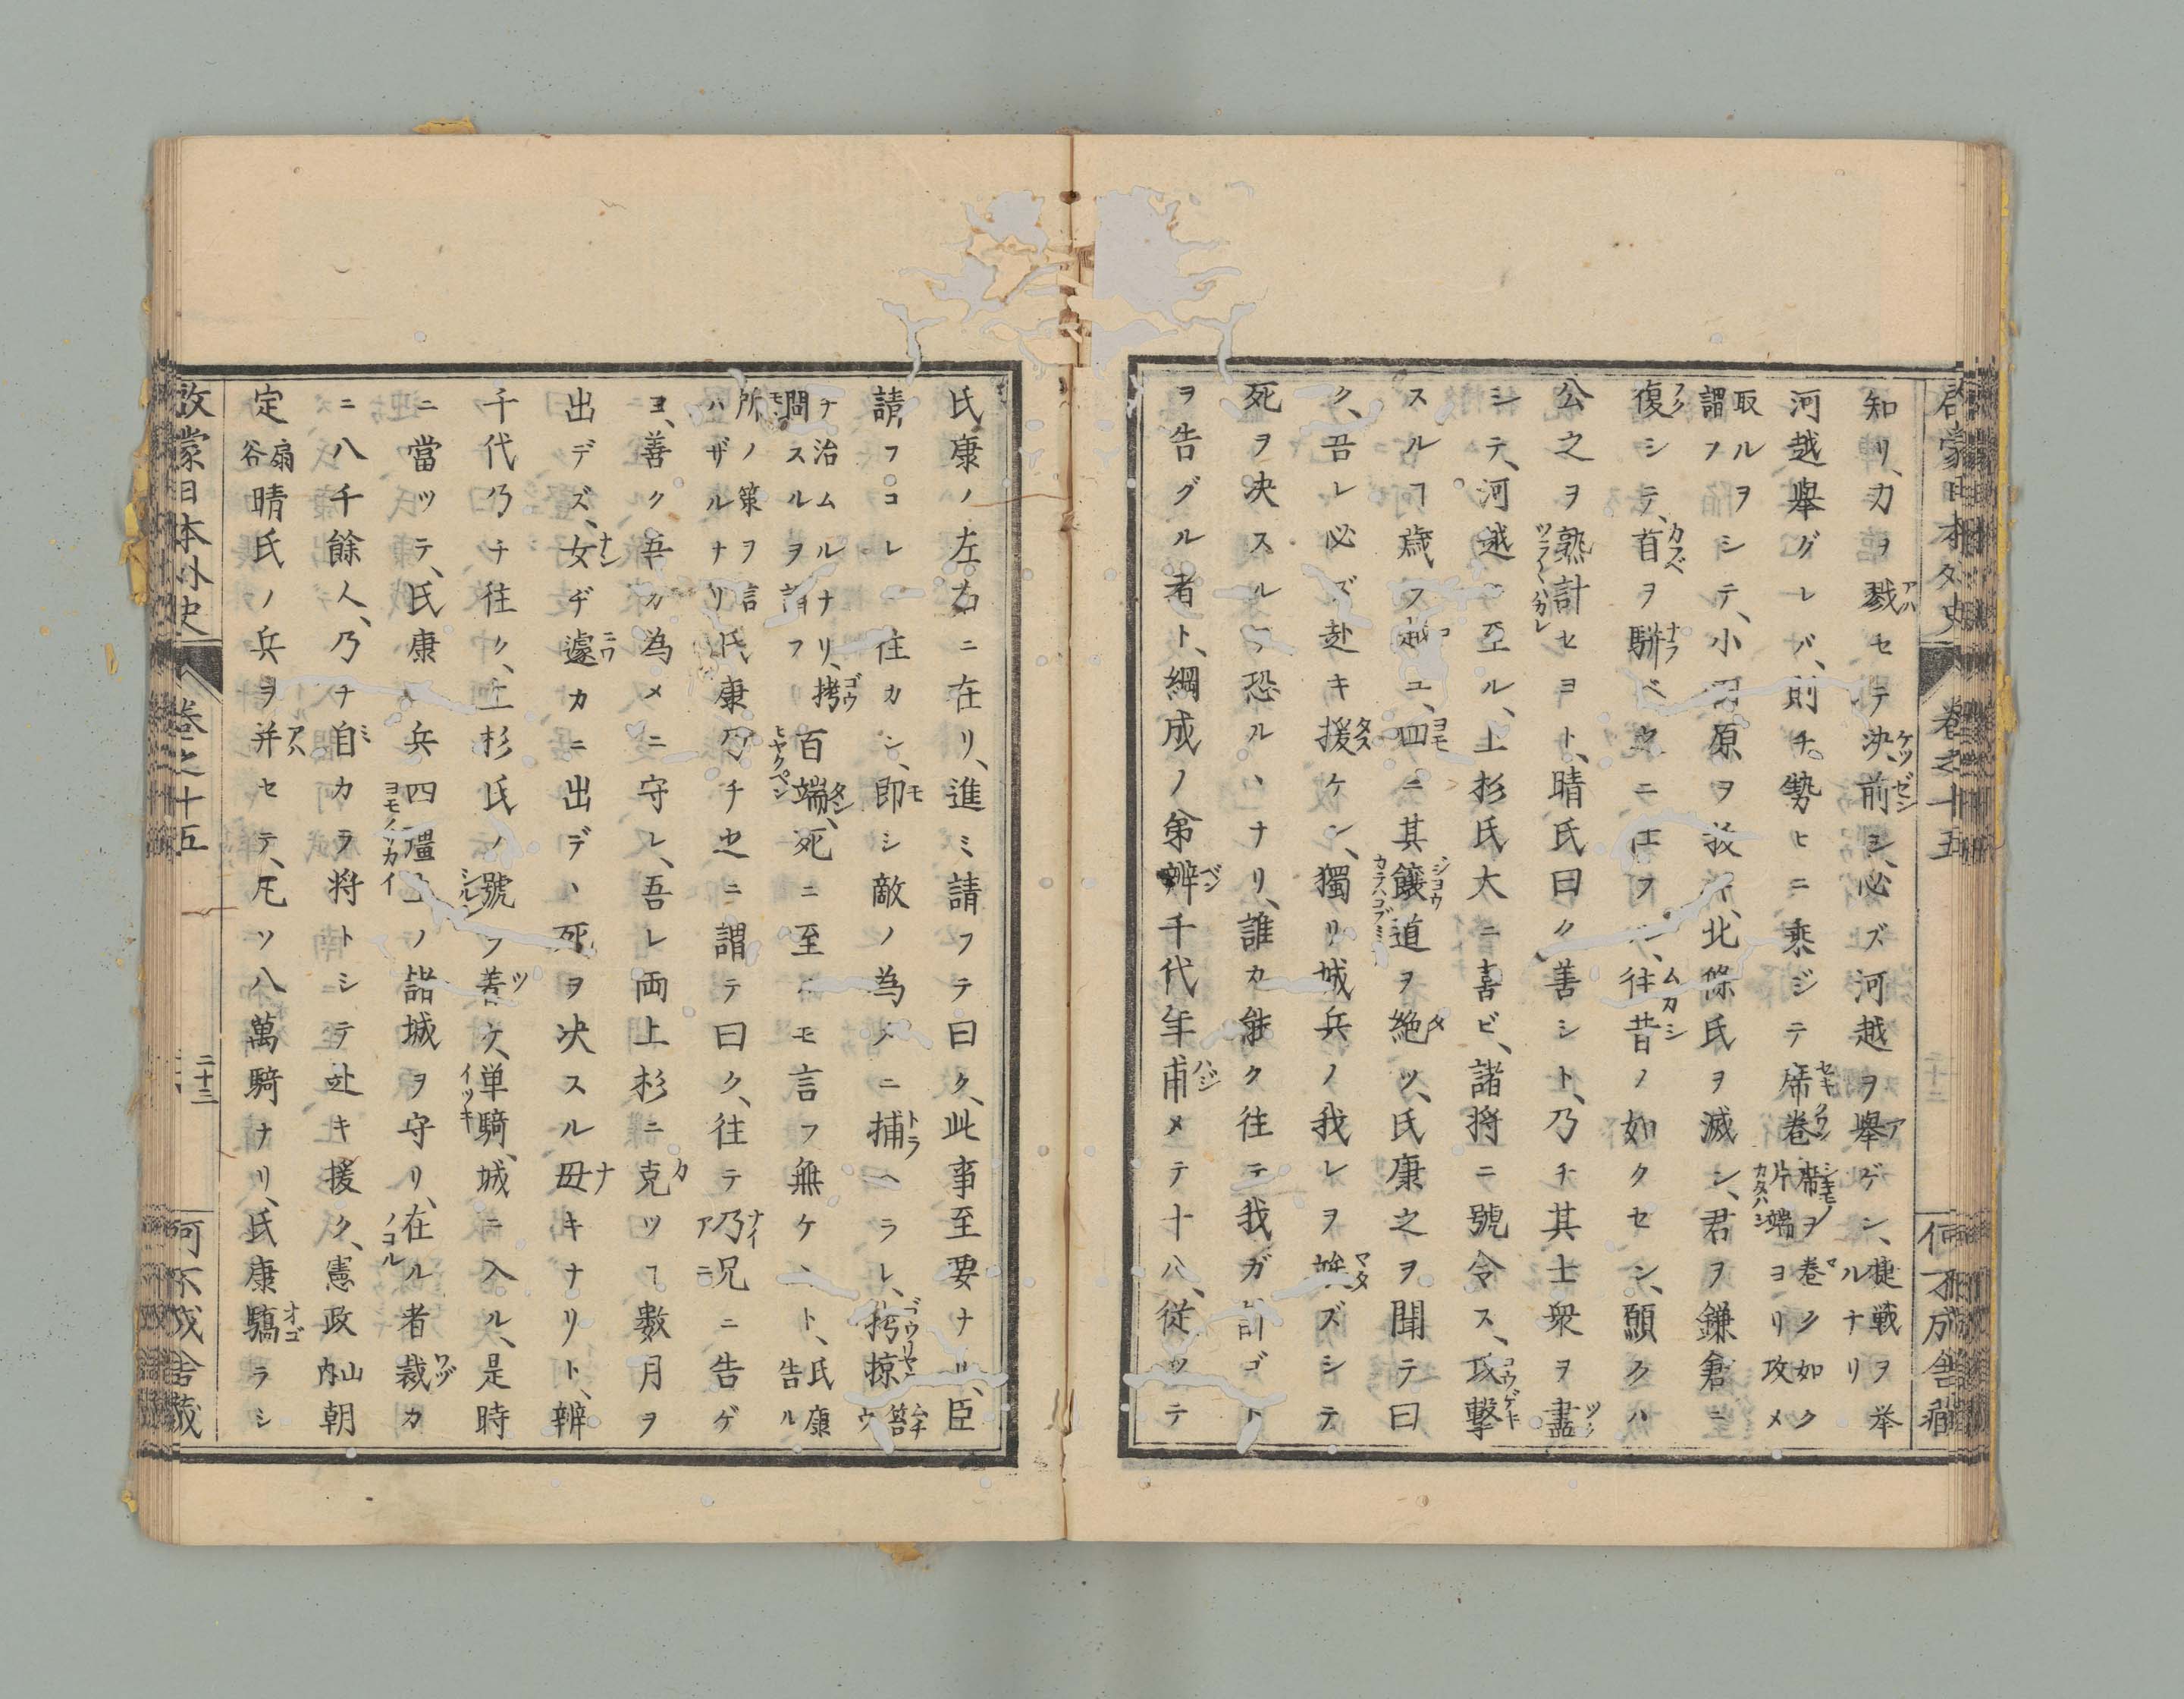 知リ、力ヲ戮セテ決前ヨ、必ズ河越ヲ擧ゲン、捷戦ヲ举ルナリ
河越擧グレバ、則チ勢ヒニ乘ジテ席卷席ヲ卷ク如ク片端ヨリ攻メ
取ルヲ謂フシテ、小田原ヲ抜キ、北條氏ヲ滅シ、君ヲ鎌倉ニ
復シテ、首ヲ駢ベ、往昔ノ如クセン、願クハ
公之ヲ熟計セヨト、晴氏曰ク善シト、乃チ其士衆ヲ盡
シテ、河越ニ至ル、上杉氏大ニ喜ビ、諸將ニ號令ス、攻擊
スルヿ歳ヲ越ユ、四ニ其饟道ヲ絶ツ、氏康之ヲ聞テ曰
ク、吾レ必ズ赴キ援ケン、獨リ城兵ノ我レヲ竢ズシテ
死ヲ决スルヿ恐ルヽナリ、誰カ能ク往テ我ガ計ゴト
ヲ告グル者ト、綱成ノ弟辨千代年甫メテ十八、従ッテ
氏康ノ左右ニ在リ、進ミ請フテ曰ク、此事至要ナリ、臣
請フコレニ往カン、即シ敵ノ為メニ捕ヘラレ、拷掠笞ウ
チ治ムルナリ、拷問スルヲ謂フ百端、死ニ至ルモ言フ無ケント、氏康告ル
所ノ策ヲ言ハザルナリ氏康乃チ之ニ謂テ曰ク、往テ乃兄ニ告ゲ
ヨ、善ク吾カ為メニ守レ、吾レ両上杉ニ克ツヿ數月ヲ
出デズ、女ヂ遽カニ出デヽ死ヲ决スル毋キナリト、辨
千代乃チ往ク、上杉氏ノ號ヲ着ケ、単騎、城ニ入ル、是時
ニ當ツテ、氏康ノ兵四疆ノ諸城ヲ守リ、在ル者裁カ
ニ八千餘人、乃チ自カラ将トシテ赴キ援ク、憲政山内朝
定扇谷晴氏ノ兵ヲ并セテ、凡ソ八萬騎ナリ、氏康驕ラシ
啓蒙日本外史
卷之十五
二十三
何不成舍藏